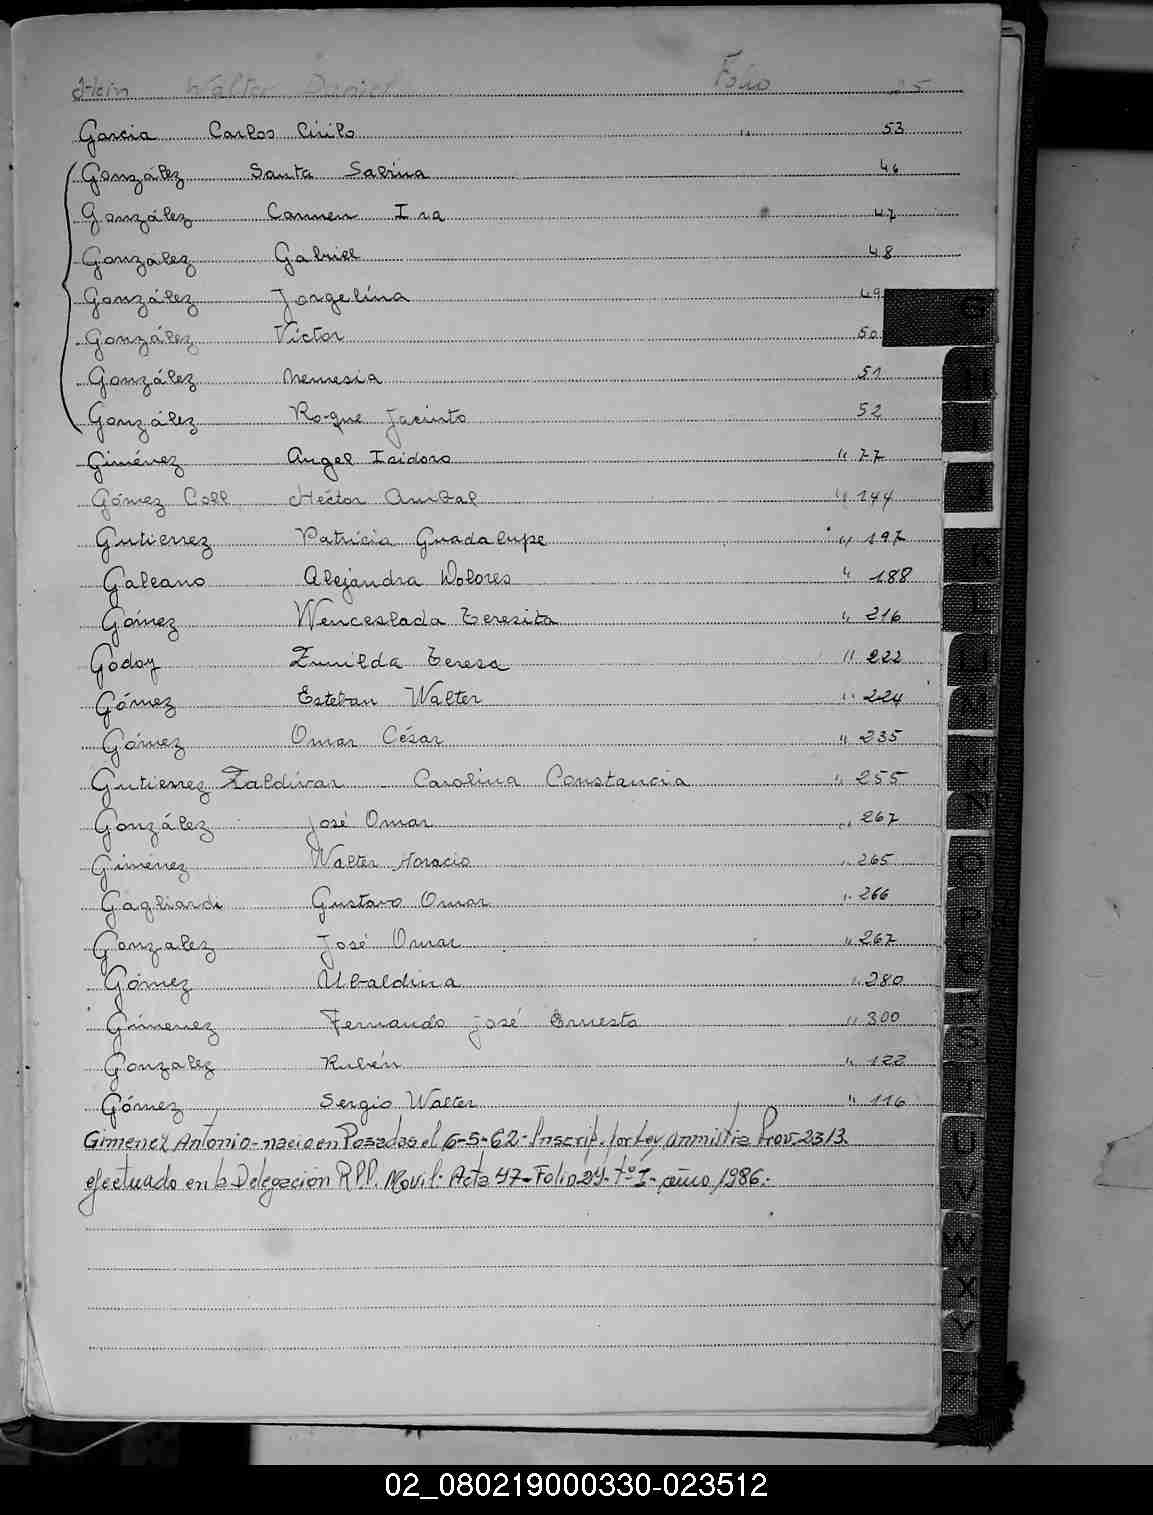 Walter Daniel Folio 25
Garcia Carlos Cirilo " 53
González Santa Sabina 46
González Carmen Ira 47
González Gabriel 48
González Jorgelina 49
González Víctor 50
González Nemesia 51
González Roque Jacinto 52
Giménez Angel Isidoro " 77
Gómez Coll Héctor Anibal " 144
Gutierrez Patricia Guadalupe " 197
Galeano Alejandra Dolores " 188
Gómez Wenceslada Teresita " 216
Godoy Zunilda Teresa " 222
Gómez Esteban Walter " 224
Gómez Omar César " 235
Gutierrez Zaldívar Carolina Constancia " 255
González José Omar " 267
Giménez Walter Horacio " 265
Gagliardi Gustavo Omar " 266
Gonzalez José Omar " 267
Gómez Ubaldina " 280
Gimenez Fernando José Ernesto " 300
Gonzalez Rubén " 122
Gómez Sergio Walter " 116
Gimenez Antonio - nacio en Posadas el 6-5-62 - Inscrip. por Ley Amnistia Prov. 2313
efectuado en la Delegacion R.P.P. Movil - Acta 47 - Folio 24 - tº I - año 1986.-
G
H
I
J
K
L
LL
M
N
Ñ
O
P
Q
R
S
T
U
V
W
X
Y
Z
02_080219000330-023512